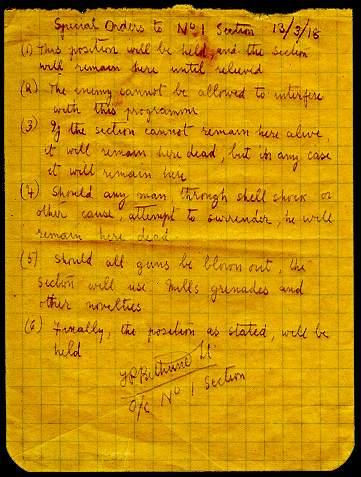 Special Orders to No 1 Section 13/3/18
(1) This position will be held, and the section
will remain here until relieved
(2) The enemy cannot be allowed to interfere
with this programme
(3) If the section cannot remain here alive
it will remain here dead, but in any case
it will remain here
(4) Should any man through shell shock or
other cause, attempt to surrender, he will
remain here dead
(5) Should all guns be blown out, the
section will use Mills grenades and
other novelties
(6) Finally, the position as stated, will be
held
FP Bethune Lt
O/C No 1 Section